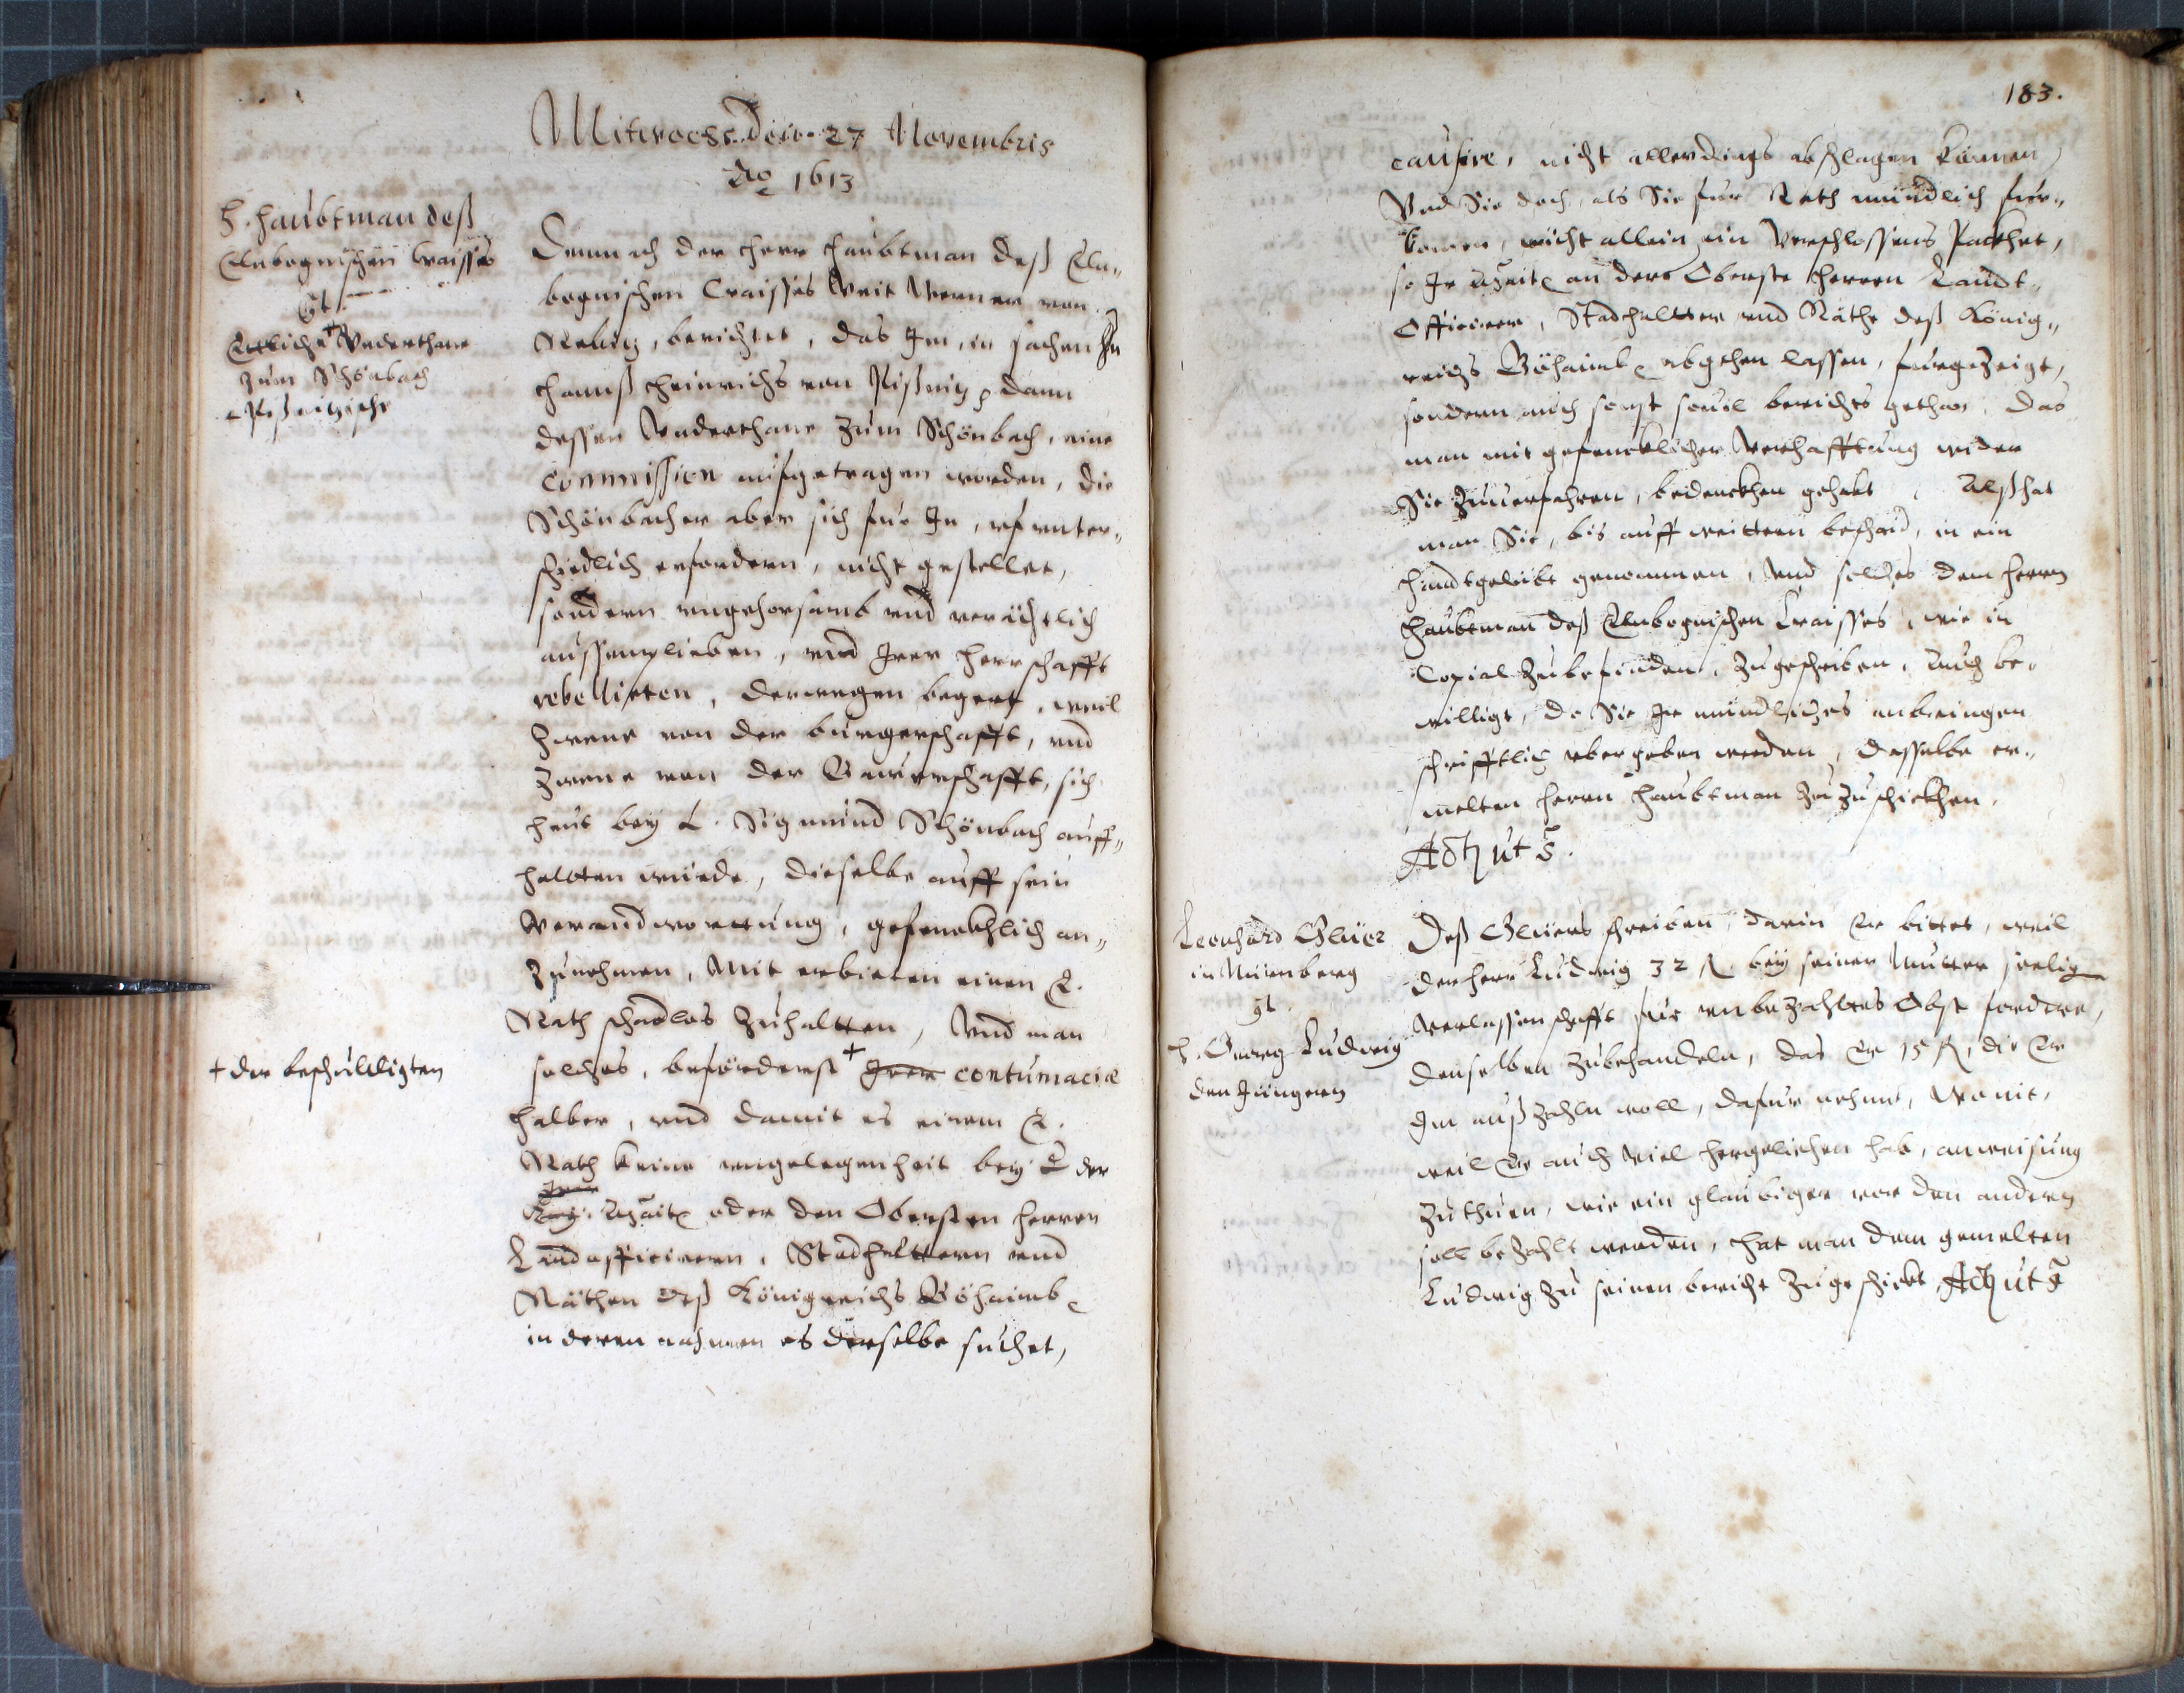 Mitwochs den 27 Novembris
Ao 1613
H. Haubtman deß
Elnbognischen Craisses
Ct.
Ettliche Underthane
zum Schönbach
Demnach der Herr Haubtman deß Eln„
bognischen Craisses Veit Werner von
berichtet, das Im, in sachen
Hannß Heinrichs von dann
dessen Underthane zum Schönbach, eine
Commission aufgetragen worden, die
Schönbacher aber sich fur In, uf unter„
schiedlich erfordern, nicht gestellet,
sondern ungehorsamb und verächtlich
aussenplieben, und Irer Herrschafft
rebellirten, derwegen begert, weil
zwene von der burgerschafft, und
zwene von der Bawerschafft, sich
heut bey L. Sigmund Schönbach auff„
haltten wurde, dieselbe auff sein
Verandworttung, gefencklich an„
zunehmen, Mit erbieten einen E.
Rath schadlos zuhaltten, Und man
solches, beförderst + Irer contumaciæ
+ der beschuldigten
halber, und damit es einem E.
Rath keine ungelegenheit bey der
Kay: Mait: oder den Obersten Herren
Landofficirern, Stadhalttern und
Räthen deß Königreichs Böhaimb
in deren nahmen es derselbe suchet,
183.
causire, nicht allerdings abschlagen können,
Und Sie doch, als Sie fur Rath mundlich fur„
komen, nicht allein ein Verschlossens Packhet,
so Ir Mait: an dero Oberste Herren Landt„
Officirer, Stadhaltter und Räthe deß König„
reichs Böhaimb abgehen lassen, furgezeigt,
sondern auch sonst sovil berichts gethan, das
man mit gefencklicher Verhafftung wider
Sie zuuerfahren, bedenckhen gehabt, Alß hat
man Sie, bis auff weittern beschaid, in ein
Handtgelübt genommen, und solches dem Herrn
Haubtman deß Elnbognischen Craisses, wie in
Copial zubefinden, zugeschriben, Auch be„
willigt, do Sie Ir mundliches anbringen
schrifftlich ubergeben werden, dasselbe er„
melten Herrn Haubtman zu zuschickhen.
Act ut s.
Leonhard
in Nürenberg
Ct.
H. Georg Ludwig
den Jüngern
Deß schreiben, darin Er bittet, weil
der Herr Ludwig 32 fl. bey seiner Mutter seelig
Verlassenschafft fur unbezahltes Obst fordere,
denselben zubehandeln, das Er 15 fl, die Er
Im außzahln woll, dafur nehme, Wo nit,
weil Er auch viel hergeliehen hab, anweisung
zuthuen, wie ein glaubiger vor den andern
soll bezahlt werden, hat man dem gemelten
Ludwig zu seinen bericht zugeschickt Act ut s